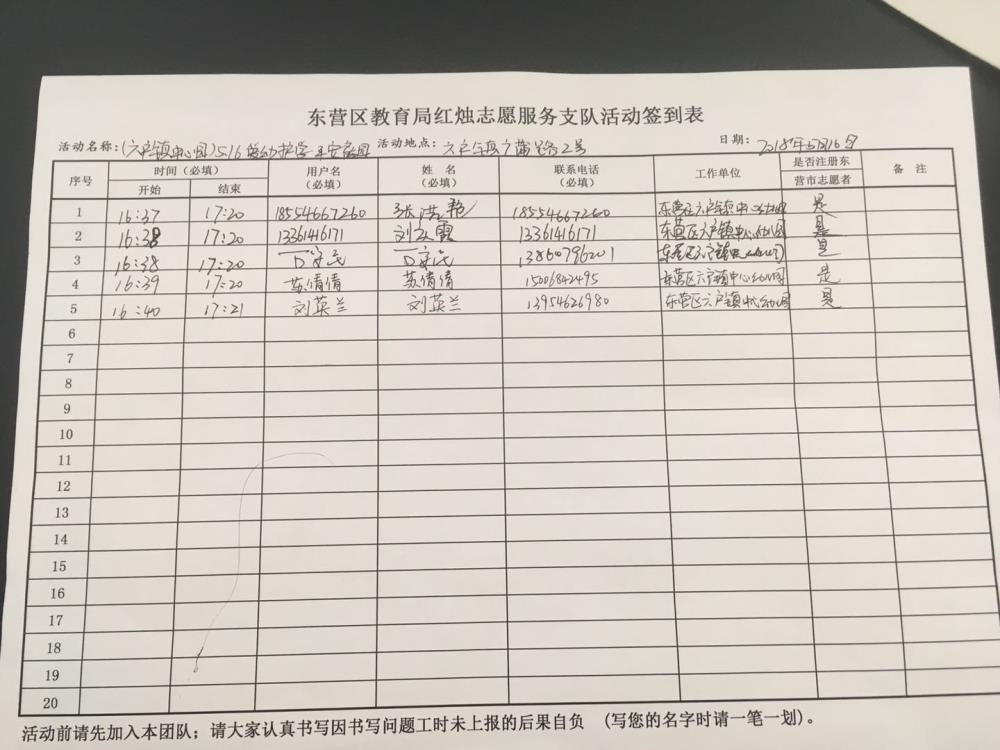 东营区教育局红烛志愿服务支队活动签到表
活动名称：(六户镇中心园)5.16 护学平安校园 活动地点：六户镇广蒲路2号 日期：2018年5月16日
序号 时间（必填） 用户名（必填） 姓名（必填） 联系电话（必填） 工作单位 是否注册东营市志愿者 备注
开始 结束
1 16:37 17:20 18554667260 张洪艳 18554667260 东营区六户镇中心幼儿园 是
2 16:38 17:20 13361416171 刘霞 13361416171 东营区六户镇中心幼儿园 是
3 16:38 17:20 东营区六户镇 是
4 16:39 17:20 苏倩倩 苏倩倩 15006842495 东营区六户镇中心幼儿园 是
5 16:40 17:21 刘英兰 刘英兰 13954626980 东营区六户镇中心幼儿园 是
6
7
8
9
10
11
12
13
14
15
16
17
18
19
20
活动前请先加入本团队；请大家认真书写因书写问题工时未上报的后果自负 （写您的名字时请一笔一划）。